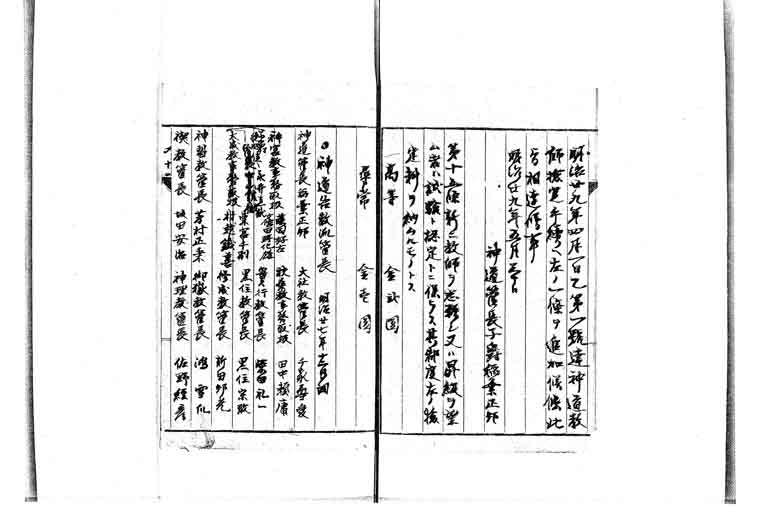 明治廿九年四月一日乙第一號達神道教
師檢定手續ヘ左ノ一條ヲ追加候條此
旨相達候事
明治廿九年五月三十日
神道管長子爵稻葉正邦
第十五條新ニ教師ヲ志願シ又ハ昇級ヲ望
ム者ハ試驗ト認定トニ係ラス其都度左ノ檢
定料ヲ納ムルモノトス
高等 金貳圓
尋常 金壱圓
神道各教派管長 明治廿七年十二月調
神道管長 稻葉正邦 大社教管長 千家尊愛
神宮教事務取扱 田中頼庸
扶桑教
實行教管長 柴田礼一
黒住教管長 黒住宗敬
大成教事務取扱 修成教管長 新田邦光
神習教管長 芳村正秉 御嶽教管長 鴻雪爪
禊教管長 坂田安治 神理教管長 佐野經彦